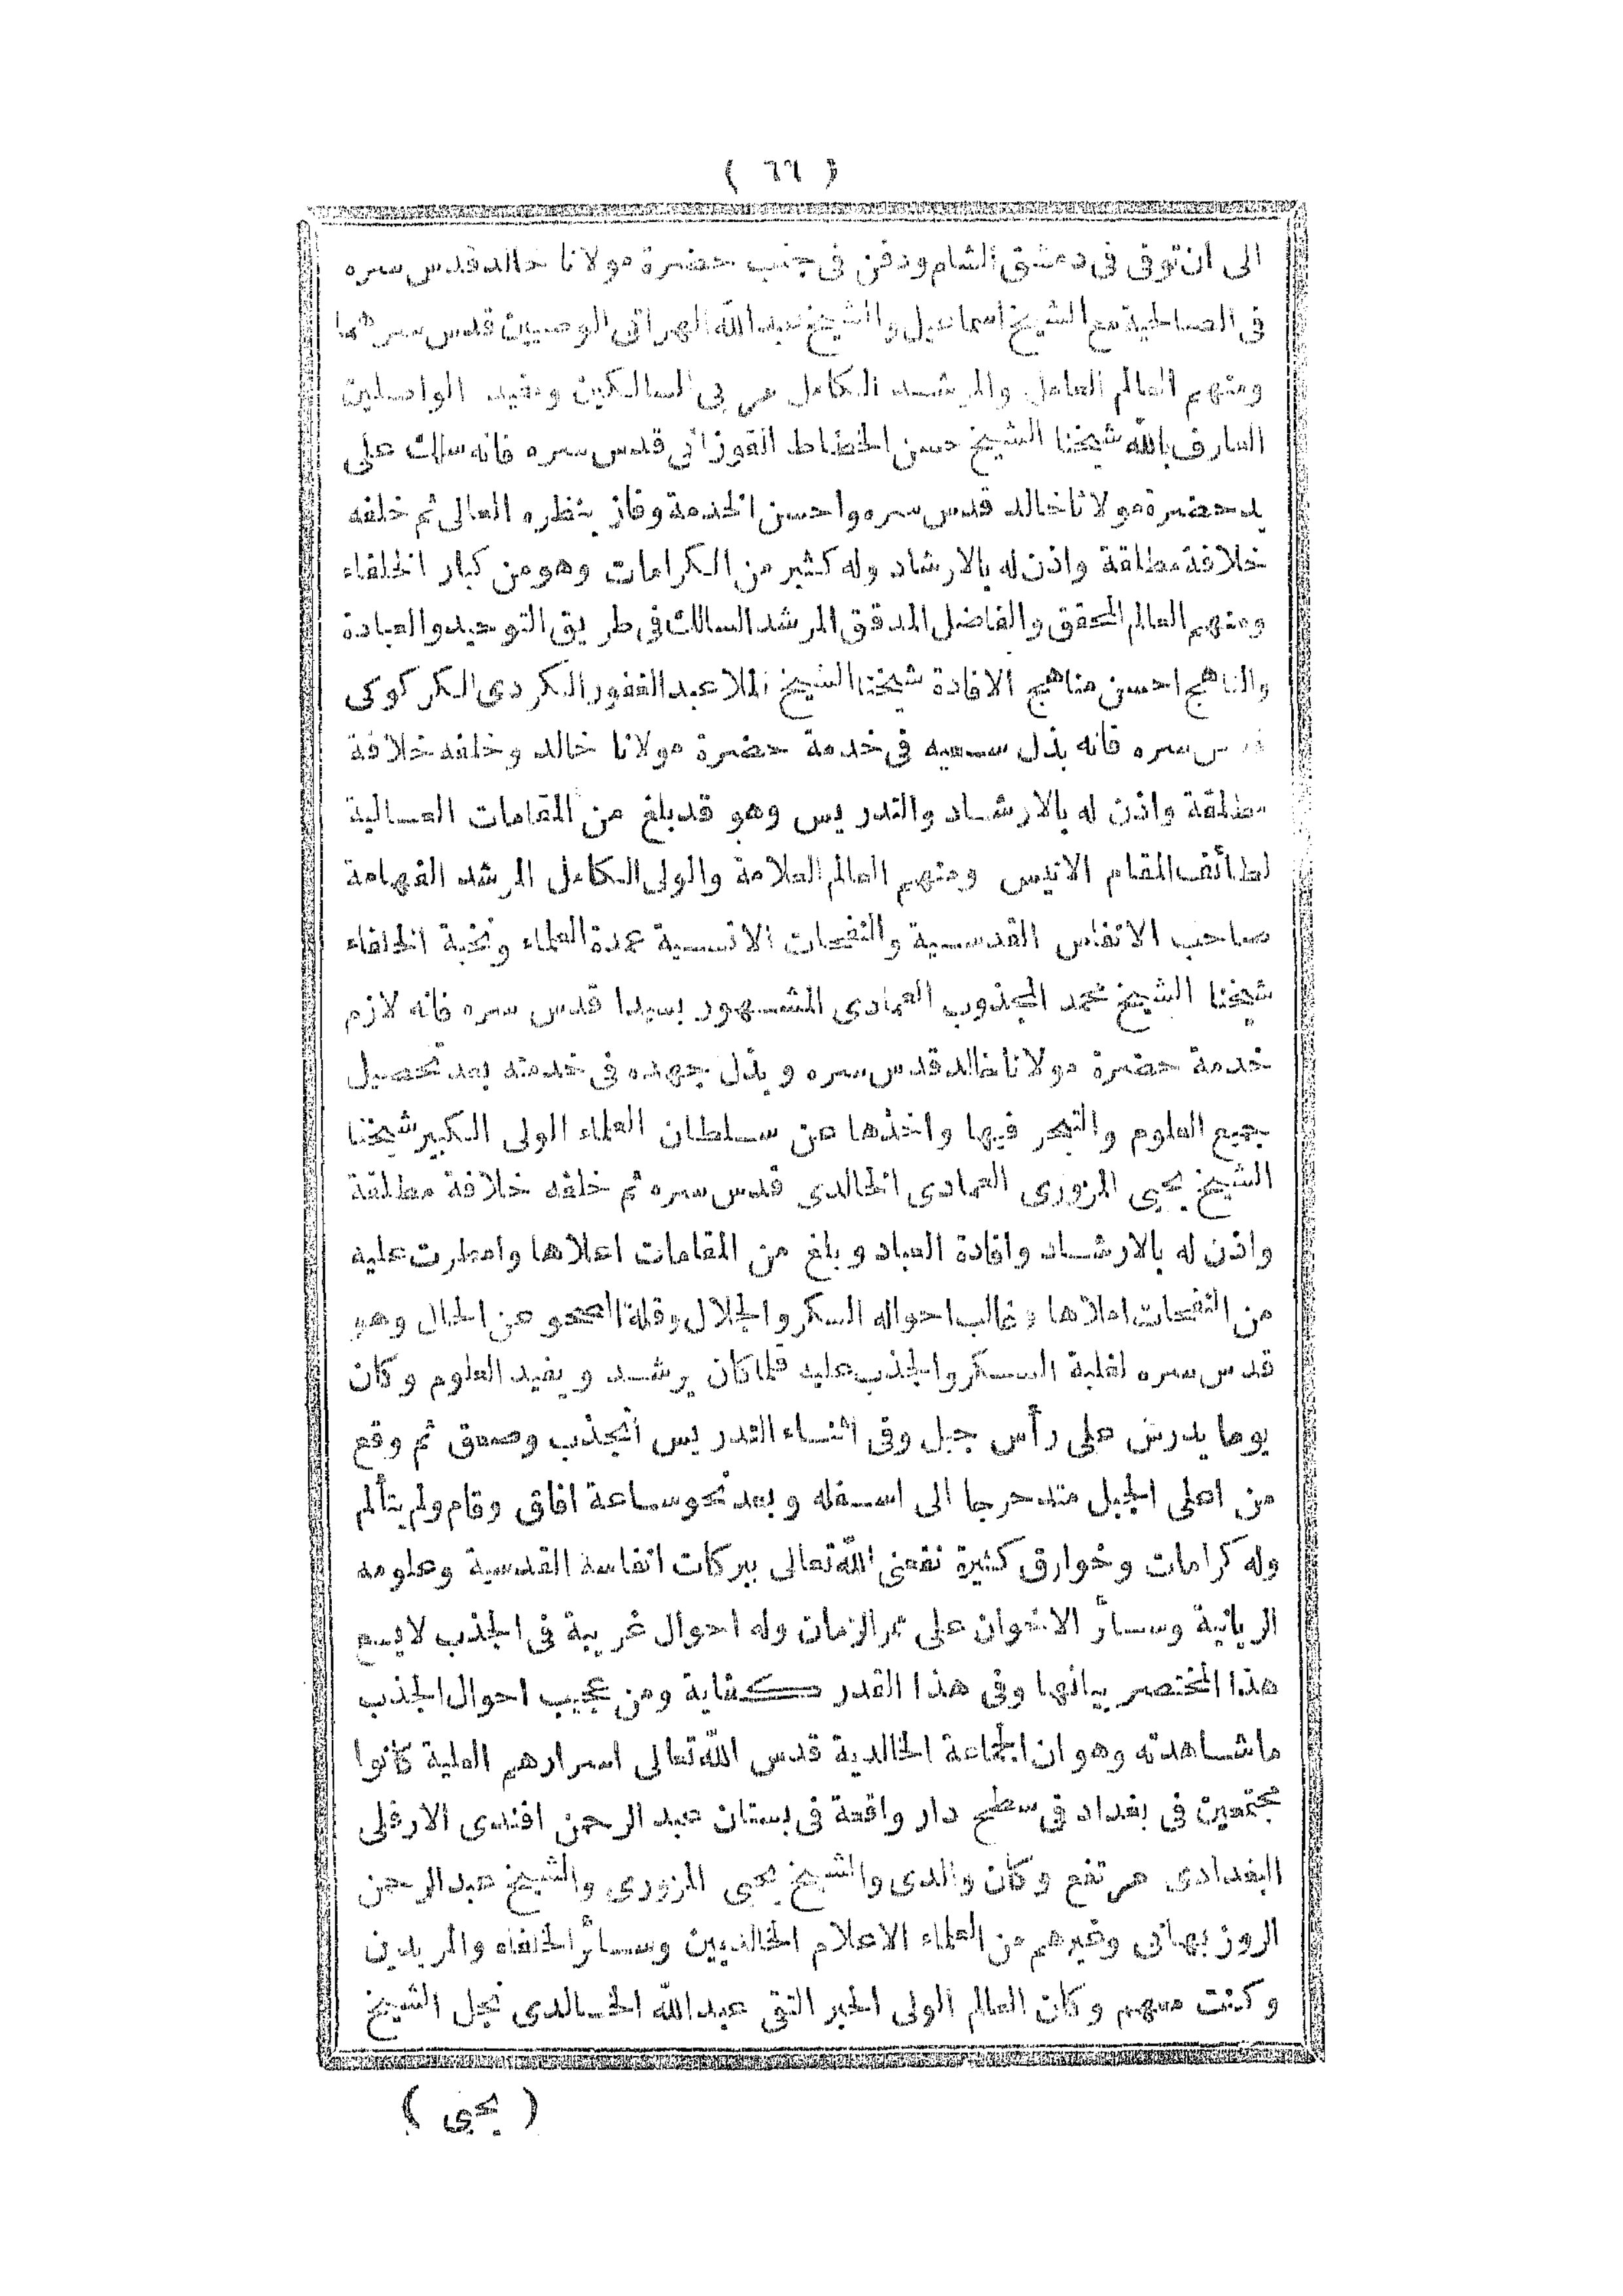 ( ٦٦ )
الى ان توفى فى دمشق الشام ودفن فى جنب حضرة مولانا خالد قدس سره
فى الصالحية مع الشيخ اسماعيل والشيخ عبد الله الهراتى الوصيين قدس سرهما
ومنهم العالم العامل والمرشد الكامل مربى السالكين ومفيد الواصلين
العارف بالله شيخنا الشيخ حسن الخطاط القوزانى قدس سره فانه سلك على
يد حضرة مولانا خالد قدس سره واحسن الخدمة وفاز بنظره العالى ثم خلفه
خلافة مطلقة واذن له بالارشاد وله كثير من الكرامات وهو من كبار الخلفاء
ومنهم العالم المحقق والفاضل المدقق المرشد السالك فى طريق التوحيد والعبادة
والناهج احسن مناهج الافادة شيخنا الشيخ الملا عبد الغفور الكردى الكركوكى
قدس سره فانه بذل سعيه فى خدمة حضرة مولانا خالد وخلفه خلافة
مطلقة واذن له بالارشاد والتدريس وهو قد بلغ من المقامات العالية
لطائف المقام الانيس ومنهم العالم العلامة والولى الكامل المرشد الفهامة
صاحب الانفاس القدسية والنفحات الانسية عمدة العلماء ونخبة الخلفاء
شيخنا الشيخ محمد المجذوب العمادى المشهور بسيدا قدس سره فانه لازم
خدمة حضرة مولانا خالد قدس سره وبذل جهده فى خدمته بعد تحصيل
جميع العلوم والتبحر فيها واخذها عن سلطان العلماء الولى الكبير شيخنا
الشيخ يحيى المزورى العمادى الخالدى قدس سره ثم خلفه خلافة مطلقة
واذن له بالارشاد وافادة العباد وبلغ من المقامات اعلاها وامطرت عليه
من النفحات املاها وغالب احواله السكر والجلال وقلة الصحو عن الحال وهو
قدس سره لغلبة السكر والجذب عليه قلما كان يرشد ويفيد العلوم وكان
يوما يدرس على رأس جبل وفى اثناء التدريس أنجذب وصعق ثم وقع
من اعلى الجبل متدحرجا الى اسفله وبعد نحو ساعة افاق وقام ولم يتألم
وله كرامات وخوارق كثيرة نفعنى الله تعالى ببركات انفاسه القدسية وعلومه
الربانية وسائر الاخوان على ممر الزمان وله احوال غريبة فى الجذب لايسع
هذا المختصر بيانها وفى هذا القدر كفاية ومن عجيب احوال الجذب
ما شاهدته وهو ان الجماعة الخالدية قدس الله تعالى اسرارهم العلية كانوا
مجتمعين فى بغداد فى سطح دار واقعة فى بستان عبد الرحمن افندى الارفلى
البغدادى مرتفع وكان والدى والشيخ يحيى المزورى والشيخ عبد الرحمن
الروزبهانى وغيرهم من العلماء الاعلام الخالديين وسائر الخلفاء والمريدين
وكنت معهم وكان العالم الولى الحبر التقى عبد الله الخالدى نجل الشيخ
( يحيى )